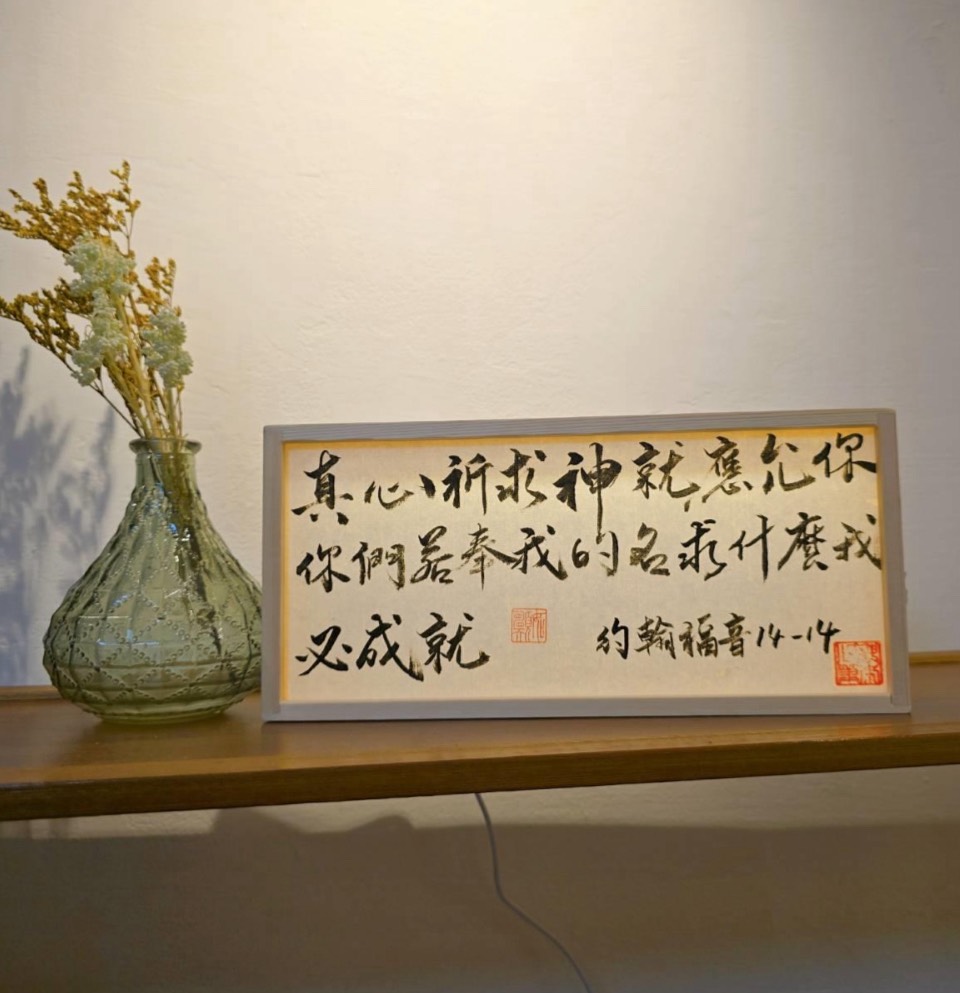 真心祈求神就應允你
你們若奉我的名求什麼我
必成就
約翰福音14-14